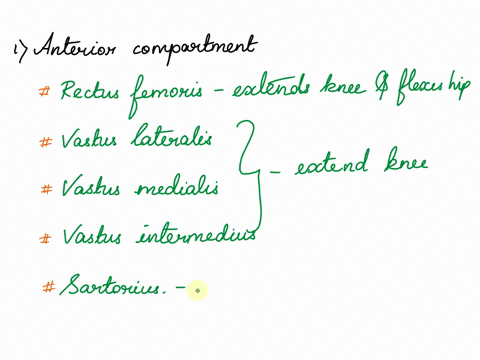 1) Anterior compartment
# Rectus femoris - extends knee & flexes hip
# Vastus lateralis
# Vastus medialis
- extend knee
# Vastus intermedius
# Sartorius. -